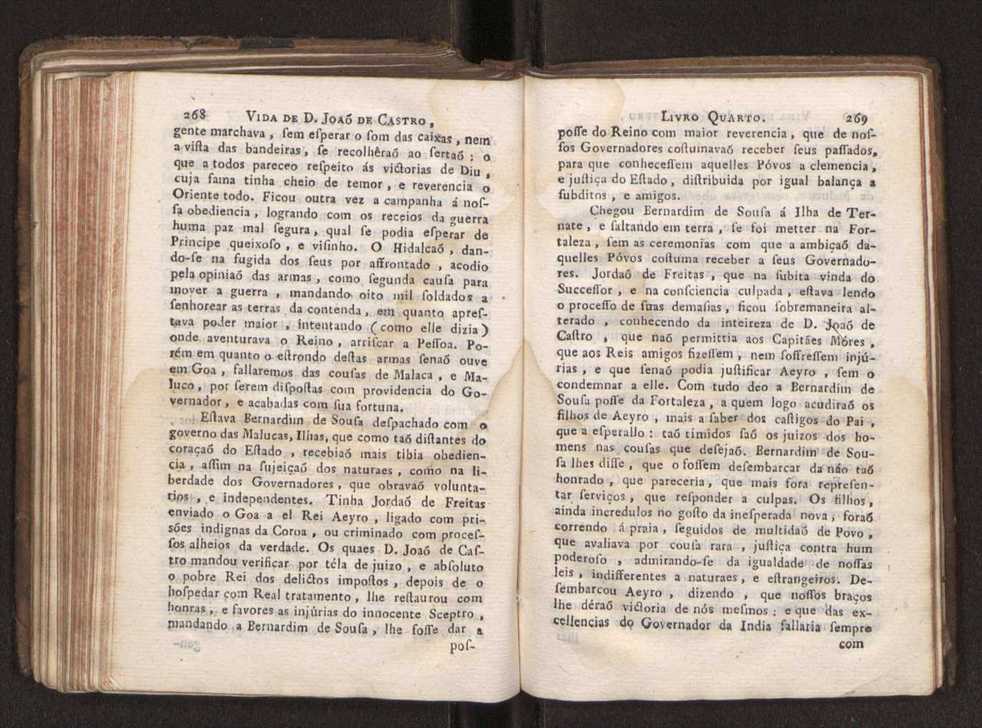 268 VIDA DE D. JOAÕ DE CASTRO,
gente marchava, sem esperar o som das caixas, nem
a vista das bandeiras, se recolhêraõ ao sertaõ; o
que a todos pareceo respeito ás victorias de Diu,
cuja fama tinha cheio de temor, e reverencia o
Oriente todo. Ficou outra vez a campanha á nos-
sa obediencia, logrando com os receios da guerra
huma paz mal segura, qual se podia esperar de
Principe queixoso, e visinho. O Hidalcaõ, dan-
do-se na fugida dos seus por affrontado, acodio
pela opiniaõ das armas, como segunda causa para
mover a guerra, mandando oito mil soldados a
senhorear as terras da contenda, em quanto apres-
tava poder maior, intentando (como elle dizia)
onde aventurava o Reino, arriscar a Pessoa. Po-
rém em quanto o estrondo destas armas senaõ ouve
em Goa, fallaremos das cousas de Malaca, e Ma-
luco, por serem dispostas com providencia do Go-
vernador, e acabadas com sua fortuna.
Estava Bernardim de Sousa despachado com o
governo das Malucas, Ilhas, que como taõ distantes do
coraçaõ do Estado, recebiaõ mais tibia obedien-
cia, assim na sujeiçaõ dos naturaes, como na li-
berdade dos Governadores, que obravaõ volunta-
rios, e independentes. Tinha Jordaõ de Freitas
enviado o Goa a el Rei Aeyro, ligado com pri-
sões indignas da Coroa, ou criminado com proces-
sos alheios da verdade. Os quaes D. Joaõ de Cas-
tro mandou verificar por téla de juizo, e absoluto
o pobre Rei dos delictos impostos, depois de o
hospedar com Real tratamento, lhe restaurou com
honras, e favores as injúrias do innocente Sceptro,
mandando a Bernardim de Sousa, lhe fosse dar a
pos-
LIVRO QUARTO. 269
posse do Reino com maior reverencia, que de nos-
sos Governadores costumavaõ receber seus passados,
para que conhecessem aquelles Póvos a clemencia,
e justiça do Estado, distribuida por igual balança a
subditos, e amigos.
Chegou Bernardim de Sousa á Ilha de Ter-
nate, e saltando em terra, se foi metter na For-
taleza, sem as ceremonias com que a ambiçaõ da-
quelles Póvos costuma receber a seus Governado-
res. Jordaõ de Freitas, que na subita vinda do
Successor, e na consciencia culpada, estava lendo
o processo de suas demasias, ficou sobremaneira al-
terado, conhecendo da inteireza de D. Joaõ de
Castro, que naõ permittia aos Capitães Móres,
que aos Reis amigos fizessem, nem soffressem injú-
rias, e que senaõ podia justificar Aeyro, sem o
condemnar a elle. Com tudo deo a Bernardim de
Sousa posse da Fortaleza, a quem logo acudiraõ os
filhos de Aeyro, mais a saber dos castigos do Pai,
que a esperallo: taõ timidos saõ os juizos dos ho-
mens nas cousas que desejaõ. Bernardim de Sou-
sa lhes disse, que o fossem desembarcar da náo taõ
honrado, que pareceria, que mais fora represen-
tar serviços, que responder a culpas. Os filhos,
ainda incredulos no gosto da inesperada nova, foraõ
correndo á praia, seguidos de multidaõ de Povo,
que avaliava por cousa rara, justiça contra hum
poderoso, admirando-se da igualdade de nossas
leis, indifferentes a naturaes, e estrangeiros. De-
sembarcou Aeyro, dizendo, que nossos braços
lhe déraõ victoria de nós mesmos; e que das ex-
cellencias do Governador da India fallaria sempre
com